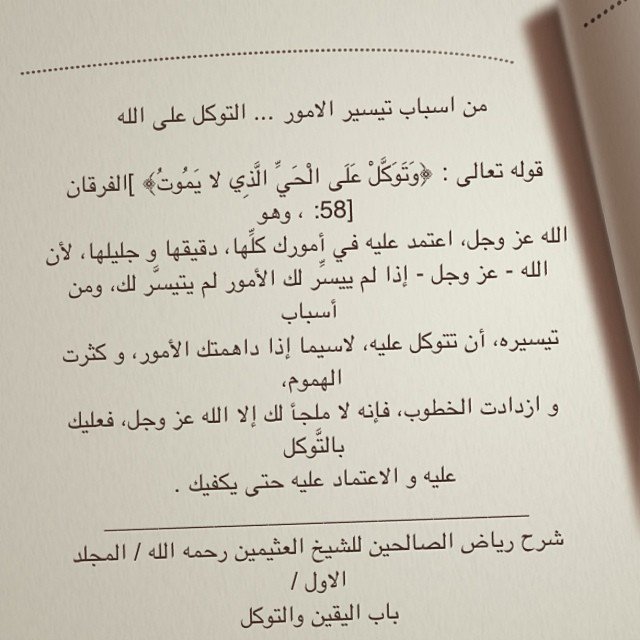 من اسباب تيسير الامور ... التوكل على الله
قوله تعالى : ﴿وَتَوَكَّلْ عَلَى الْحَيِّ الَّذِي لا يَمُوتُ﴾ ]الفرقان
[58: ، وهو
الله عز وجل، اعتمد عليه في أمورك كلِّها، دقيقها و جليلها، لأن
الله - عز وجل - إذا لم ييسِّر لك الأمور لم يتيسَّر لك، ومن
أسباب
تيسيره، أن تتوكل عليه، لاسيما إذا داهمتك الأمور، و كثرت
الهموم،
و ازدادت الخطوب، فإنه لا ملجأ لك إلا الله عز وجل، فعليك
بالتَّوكل
عليه و الاعتماد عليه حتى يكفيك .
شرح رياض الصالحين للشيخ العثيمين رحمه الله / المجلد
الاول /
باب اليقين والتوكل